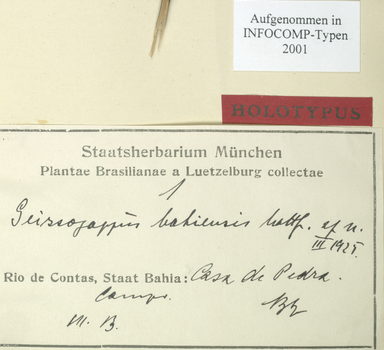 Aufgenommen in
INFOCOMP-Typen
2001
HOLOTYPUS
Staatsherbarium München
Plantae Brasilianae a Luetzelburg collectae
1
Geissopappus bahiensis Mattf. sp n.
III 1925
Rio de Contas, Staat Bahia: Casa de Pedra.
Campo.
M. B.